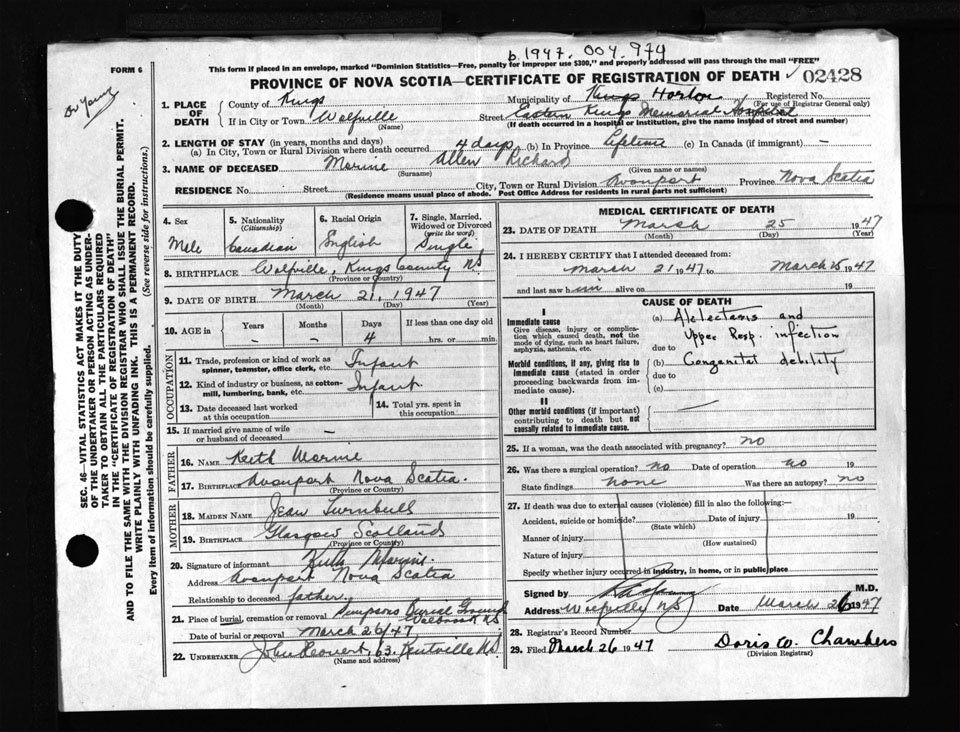 b. 1947. 004.974
FORM 6
This form if placed in an envelope, marked "Dominion Statistics—Free, penalty for improper use $300," and properly addressed will pass through the mail "FREE"
PROVINCE OF NOVA SCOTIA—CERTIFICATE OF REGISTRATION OF DEATH
02428
Dr Young
SEC. 46—VITAL STATISTICS ACT MAKES IT THE DUTY
OF THE UNDERTAKER OR PERSON ACTING AS UNDER-
TAKER TO OBTAIN ALL THE PARTICULARS REQUIRED
IN THE "CERTIFICATE OF REGISTRATION OF DEATH"
AND TO FILE THE SAME WITH THE DIVISION REGISTRAR WHO SHALL ISSUE THE BURIAL PERMIT.
WRITE PLAINLY WITH UNFADING INK. THIS IS A PERMANENT RECORD.
Every item of information should be carefully supplied. (See reverse side for instructions.)
1. PLACE OF DEATH
County of Kings Municipality of Kings Horton Registered No.
(For use of Registrar General only)
If in City or Town Wolfville Street Eastern Kings Memorial Hospital
(Name) (If death occurred in a hospital or institution, give the name instead of street and number)
2. LENGTH OF STAY (in years, months and days)
(a) In City, Town or Rural Division where death occurred 4 days (b) In Province Lifetime (c) In Canada (if immigrant) —
3. NAME OF DECEASED Morine Allen Richard
(Surname) (Given name or names)
RESIDENCE No. Street City, Town or Rural Division Avonport Province Nova Scotia
(Residence means usual place of abode. Post Office Address for residents in rural parts not sufficient)
4. Sex
Male
5. Nationality
(Citizenship)
Canadian
6. Racial Origin
English
7. Single, Married,
Widowed or Divorced
(write the word)
Single
8. BIRTHPLACE Wolfville, Kings County NS
(Province or Country)
9. DATE OF BIRTH March 21, 1947
(Month) (Day) (Year)
10. AGE in
Years Months Days If less than one day old
– – 4 hrs. or min.
OCCUPATION
11. Trade, profession or kind of work as
spinner, teamster, office clerk, etc. Infant
12. Kind of industry or business, as cotton-
mill, lumbering, bank, etc. Infant
13. Date deceased last worked
at this occupation
14. Total yrs. spent in
this occupation
15. If married give name of wife
or husband of deceased —
FATHER
16. Name Keith Morine
17. Birthplace Avonport Nova Scotia.
(Province or Country)
MOTHER
18. Maiden Name Jean Turnbull
19. Birthplace Glasgow Scotland
(Province or Country)
20. Signature of informant Keith Morine
Address Avonport Nova Scotia
Relationship to deceased father.
21. Place of burial, cremation or removal Simpsons Burial Ground
NS
Date of burial or removal March 26/47
22. UNDERTAKER Kentville NS
(Name and address)
MEDICAL CERTIFICATE OF DEATH
23. DATE OF DEATH March 25 1947
(Month) (Day) (Year)
24. I HEREBY CERTIFY that I attended deceased from:
March 21 1947 to March 25 1947
and last saw him alive on 19
CAUSE OF DEATH
I
Immediate cause
Give disease, injury or complica-
tion which caused death, not the
mode of dying, such as heart failure,
asphyxia, asthenia, etc.
(a) Atelectasis and
Upper Resp. infection
due to
Morbid conditions, if any, giving rise to
immediate cause (stated in order
proceeding backwards from im-
mediate cause).
(b) Congenital debility
due to
(c)
II
Other morbid conditions (if important)
contributing to death but not
causally related to immediate cause.
—
25. If a woman, was the death associated with pregnancy? no
26. Was there a surgical operation? no Date of operation no 19
State findings none Was there an autopsy? no
27. If death was due to external causes (violence) fill in also the following:—
Accident, suicide or homicide? Date of injury 19
(State which)
Manner of injury
(How sustained)
Nature of injury
Specify whether injury occurred in industry, in home, or in public place
Signed by M.D.
Address Wolfville NS Date March 26 1947
28. Registrar's Record Number
29. Filed March 26 1947 Doris W. Chambers
(Division Registrar)